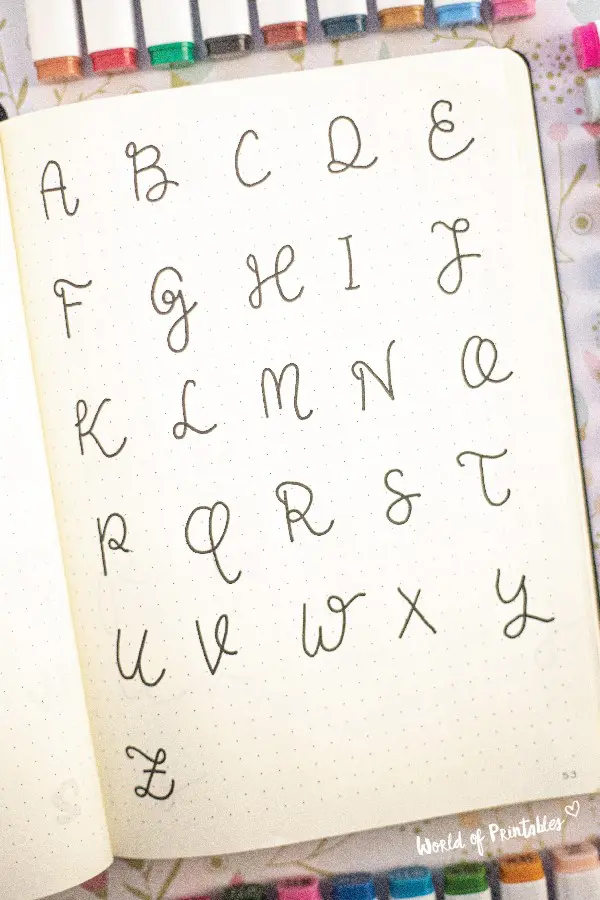 A B C D E
F G H I J
K L M N O
P Q R S T
U V W X Y
Z
53
World of Printables